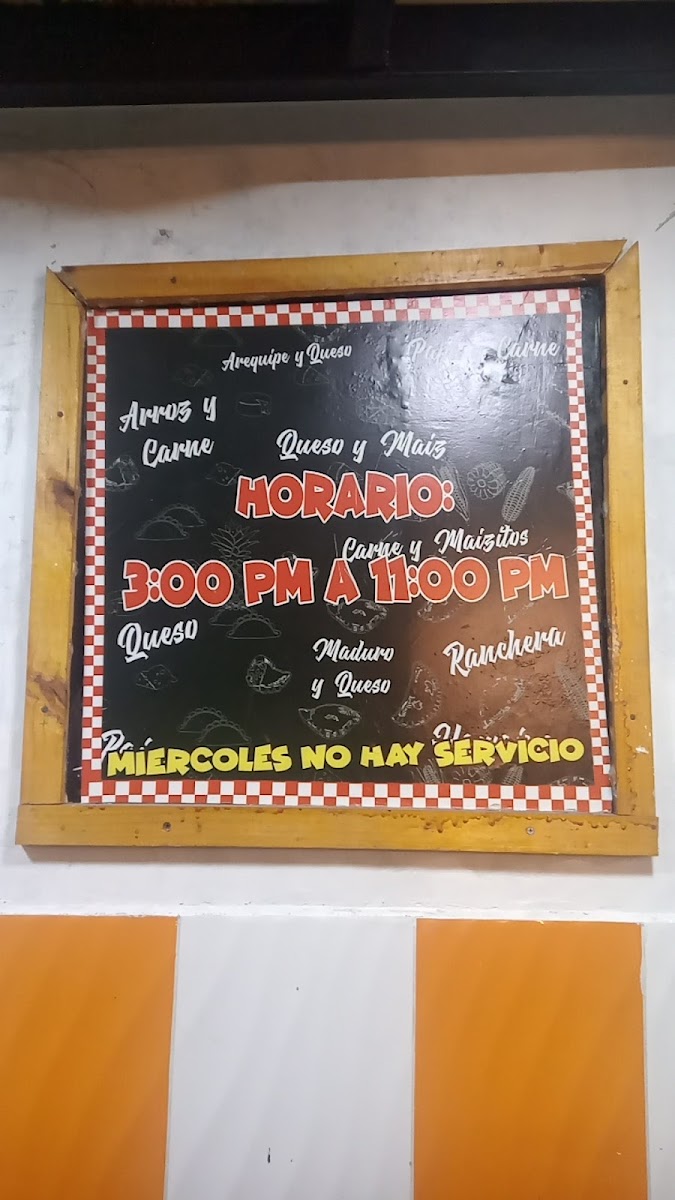 Arequipe y Queso
Carne
Arroz y
Carne
Queso y Maiz
HORARIO:
Carne y Maizitos
3:00 PM A 11:00 PM
Queso
Maduro
y Queso
Ranchera
MIERCOLES NO HAY SERVICIO